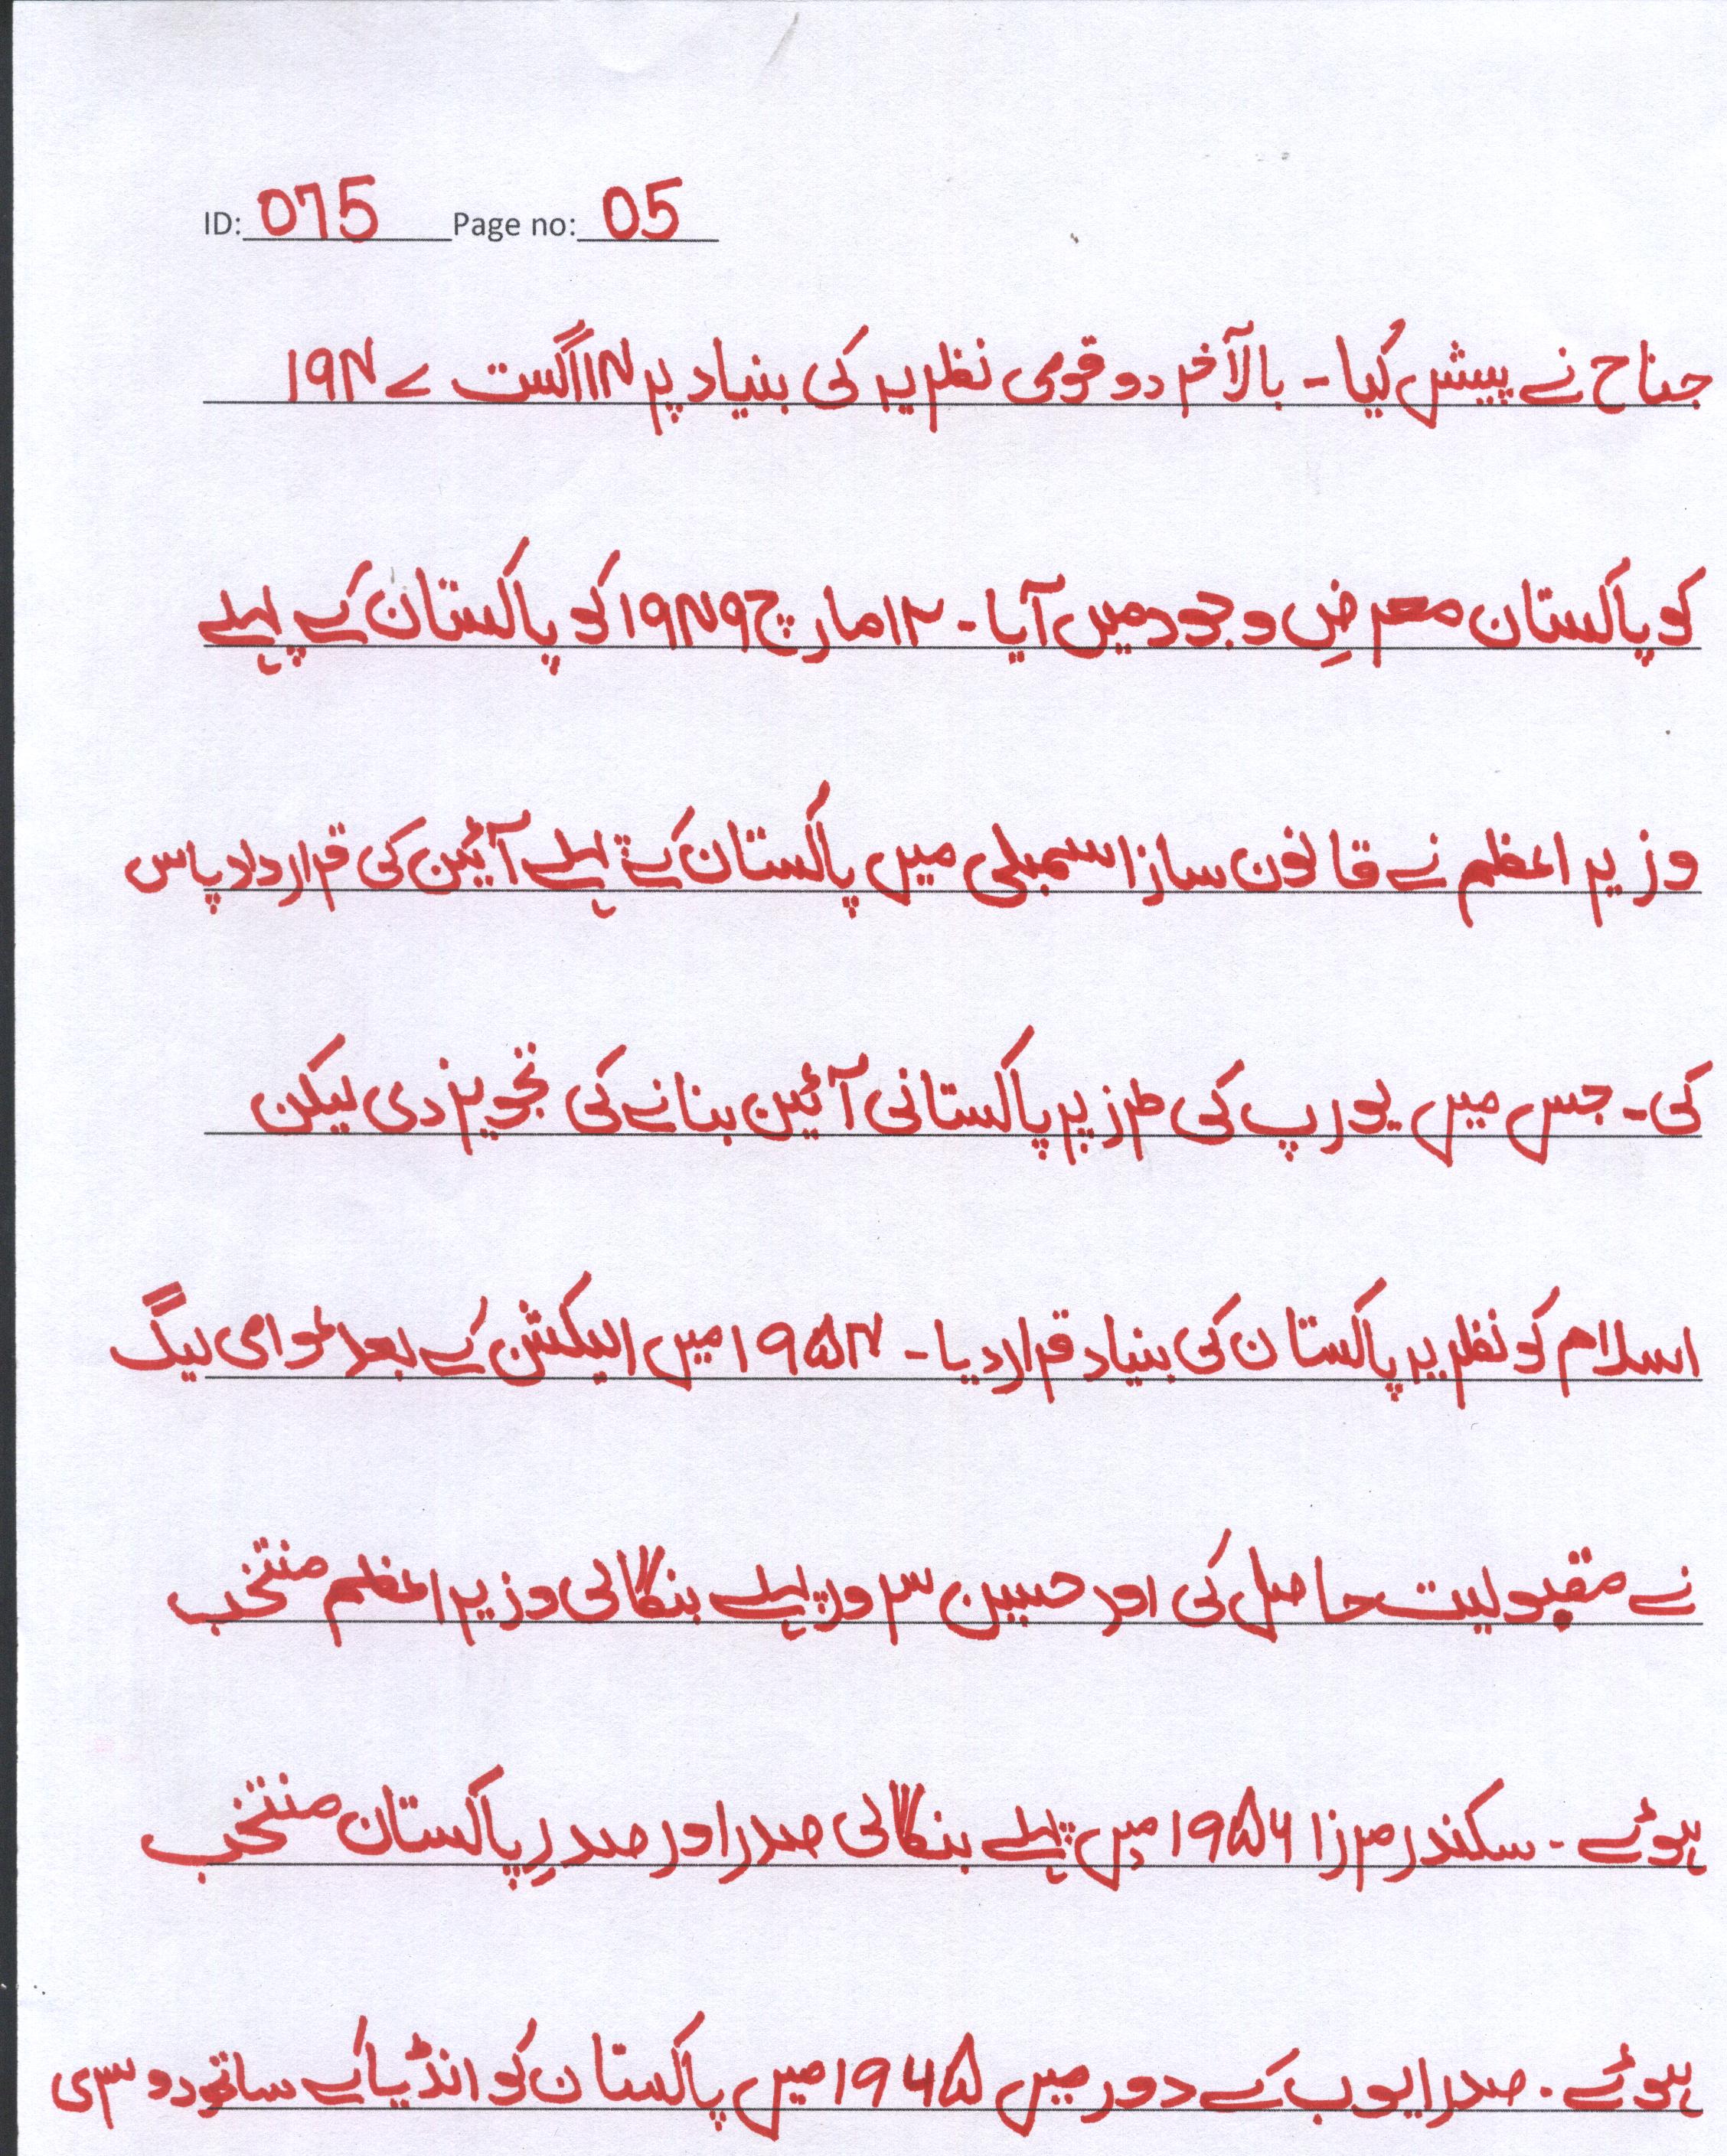 ID: 075 Page no: 05
جناح نے پیش کیا۔ بالآخر دو قومی نظریہ کی بنیاد پر ۱۴اگست ۱۹۴۷
کو پاکستان معرضِ وجود میں آیا۔ ۱۲مارچ ۱۹۴۹ کو پاکستان کے پہلے
وزیر اعظم نے قانون ساز اسمبلی میں پاکستان کے پہلے آئین کی قرارداد پاس
کی۔ جس میں یورپ کی طرز پر پاکستانی آئین بنانے کی تجویز دی لیکن
اسلام کو نظریہ پاکستان کی بنیاد قرار دیا۔ ۱۹۵۴ میں الیکشن کے بعد عوامی لیگ
نے مقبولیت حاصل کی اور حسین سرور پہلے بنگالی وزیر اعظم منتخب
ہوئے۔ سکندر مرزا ۱۹۵۶ میں پہلے بنگالی صدر اور صدرِ پاکستان منتخب
ہوئے۔ صدر ایوب کے دور میں ۱۹۶۵ میں پاکستان کو انڈیا کے ساتھ دوسری